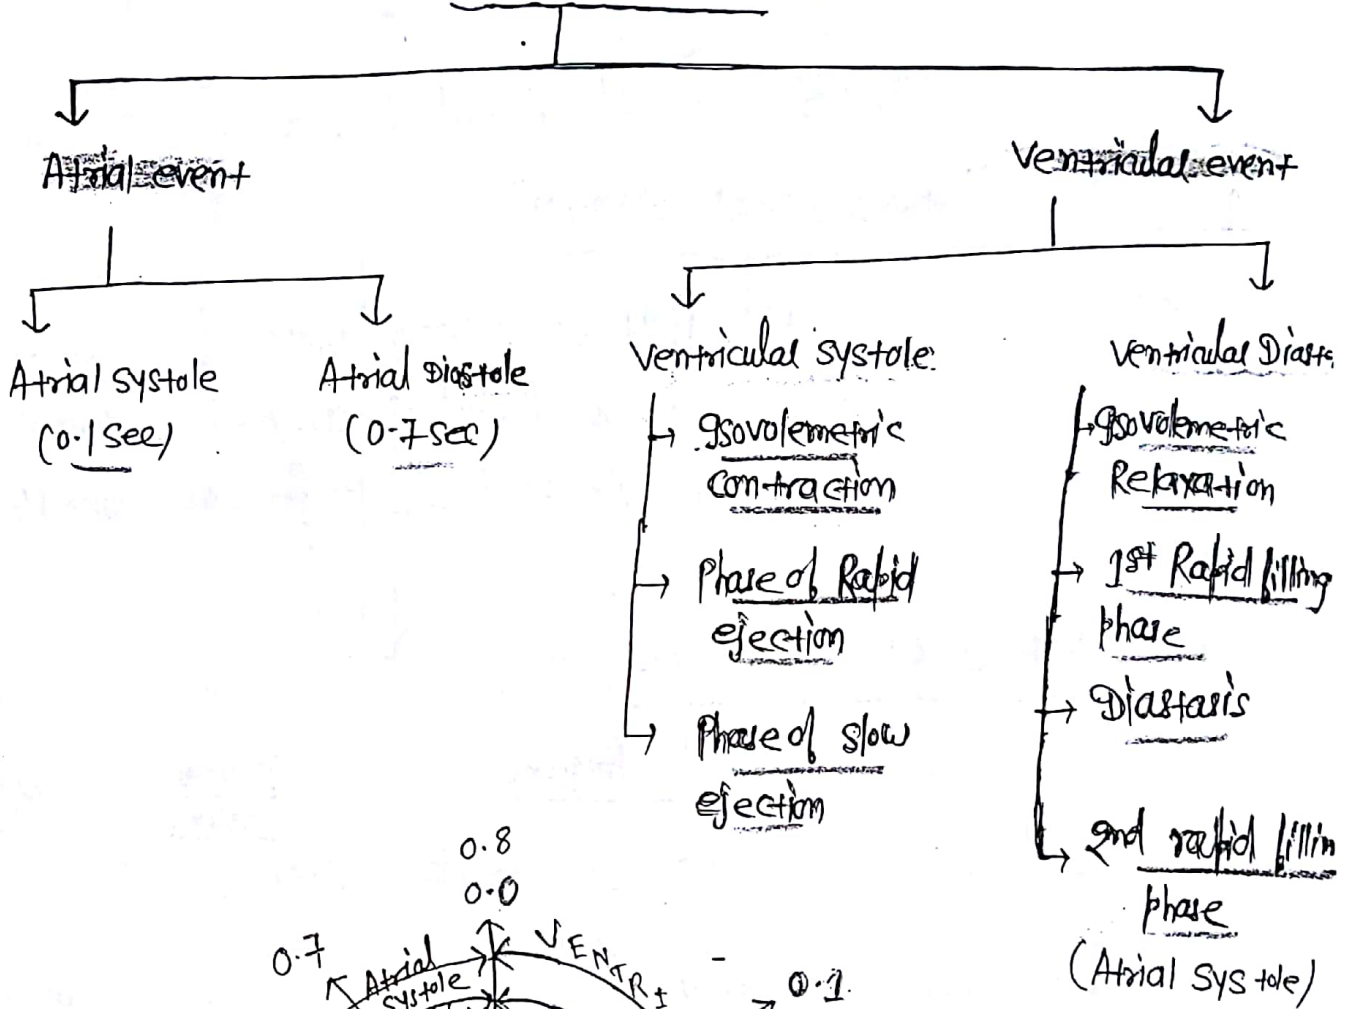 Atrial event
Ventricular event
Atrial systole
(0.1 sec)
Atrial Diastole
(0.7 sec)
Ventricular systole:
Isovolemetric
contraction
Phase of Rapid
ejection
Phase of slow
ejection
Ventricular Diasto
Isovolemetric
Relaxation
1st Rapid filling
phase
Diastasis
2nd rapid fillin
phase
(Atrial Systole)
0.8
0.0
0.7
Atrial
systole
VENTRI
0.1